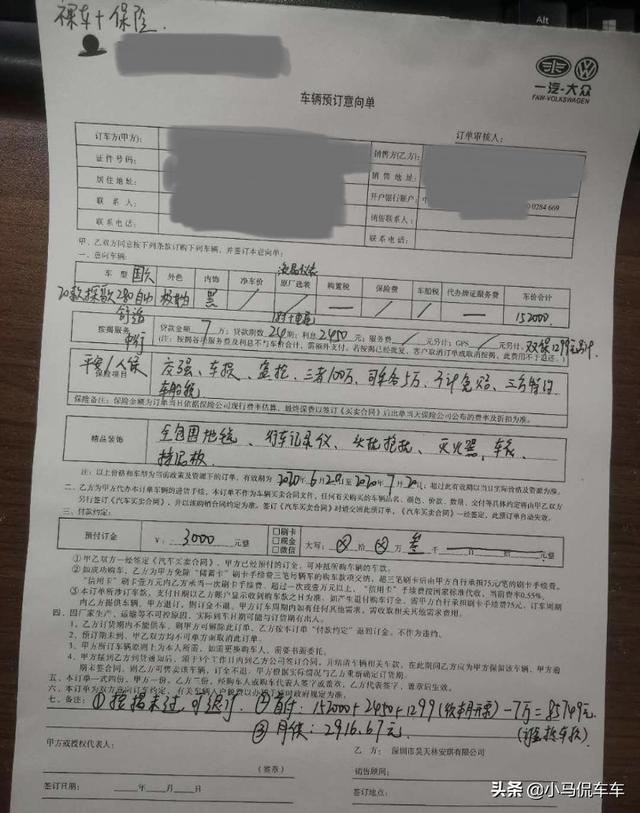 裸车+保险
一汽-大众
FAW-VOLKSWAGEN
车辆预订意向单
订单审核人:
订车方(甲方):
销售方(乙方):
证件号码:
销售地址:
居住地址:
开户银行账户:
0284 669
联系人
销售联系人:
联系电话:
联系电话:
甲、乙双方同意按下列条款订购下列车辆,并签订本意向单:
一、意向车辆:
液晶仪表
车型 国六 外色 内饰 净车价 原厂选装 购置税 保险费 车船税 代办牌证服务费 车价合计
20款探歌280自动 极地白 黑 / / — / / / 152000
舒适
按揭服务 贷款金额:7万;贷款期数:24期;利息2450元;服务费/元另计;GPS/元另计,双保1299元另计
中行 (注:按揭各项服务费及利息不与车价合计,需额外支付。若按揭已经批复,客户取消订单或取消按揭,此费用不予退还。)
平安/人保
保险项目 交强、车损、盗抢、三者100万、司乘各5万、不计免赔、三方特约
车船税
保险备注:保险金额为订单当日依据保险公司现行费率估算,最终保费以签订《买卖合同》后出单当天保险公司公布的费率及折扣为准。
精品装饰 全包围地毯、行车记录仪、灭火器、车衣
挡泥板
注:以上价格和车型为当前政策及资源下的订单,有效期为2020年6月29日至2020年7月2日;超过此有效期以当日实际价格及资源为准。
二、乙方为甲方代办本订单车辆的进货手续,本订单不作为车辆买卖合同文件,任何有关购买的车辆品名、颜色、价款、数量、交付等具体约定将由甲乙双方
另行签订《汽车买卖合同》,并以该购销合同约定为准。签订《汽车买卖合同》时请交回此预订单,《汽车买卖合同》一经签定,此预订单自动失效。
三、付款约定:
预付订金 ¥:3000元整 □刷卡 □现金 □微信 大写:⊗拾⊗万叁千
①甲乙双方一经签订《汽车买卖合同》,甲方已经预付的订金,可冲抵所购车辆的车款。
②如成功购车,乙方为甲方免除“储蓄卡”刷卡手续费三笔与辆车的购车款项交纳,超三笔刷卡后由甲方自行承担75元/笔的刷卡手续费。
“信用卡”刷卡壹万元内乙方承担当一次刷卡手续费,超过一次或壹万元以上,“信用卡”手续费按国家标准代收,当前费率0.55%。
③本订单所涉订车款,支付日期以乙方账户显示收到购车款之日为准,如产生退付购车订金,需甲方自行承担刷卡手续费75元。订车周期
内乙方提供车辆,甲方退订,则订金不退,甲方订车周期内如有任何其他需求,需收取相关其他需求费用。
四、因厂家生产、运输等不可控原因,实际到车日期可能与订货期有出入。
1、乙方订货期内不能供车,则甲方可解除此订单,乙方按本订单“付款约定”退回订金,不作为违约。
2、预订期未到,甲乙双方均不可单方面取消此订单。
3、甲方所订车辆原则上为本人所需,如需更换购车人,需要书面委托。
4、甲方接到乙方到货通知后,须于3个工作日内到乙方公司签订合同,并结清车辆相关车款,在此期间乙方应为甲方保留该车辆,甲方逾
期未签合同,则乙方可售卖该车辆,订金不退,甲方根据实际情况与乙方重新确定订货期。
五、本订单一式四份,甲方一份,乙方三份,经购车人或购车代表人签字或盖章,乙方代表签字,盖章后生效。
七、备注:①按揭未过,可退订 ②首付:152000+2450+1299-7万=85749元
③月供:2916.67元
甲方或授权代表人:
乙方:深圳市昊天林安琪有限公司
(签章)
销售顾问:
签订日期: 年 月 日
签订地点:
头条 @小马侃车车